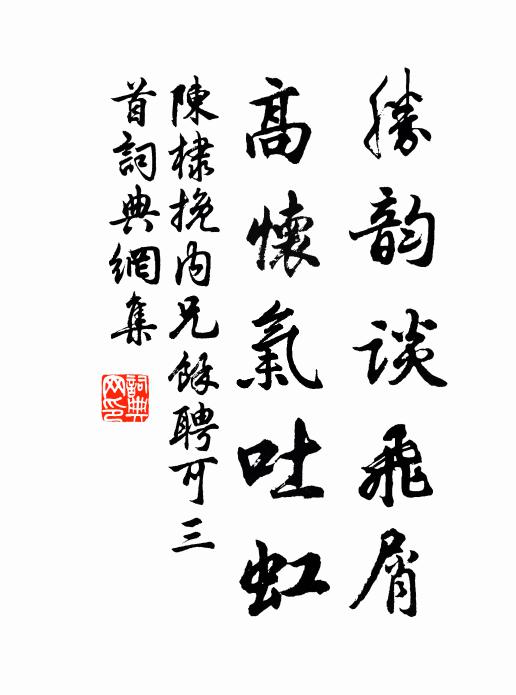 勝韵談飛屑
高懷氣吐虹
陳棣挽内兄餘聘可三
首詞典網集
詞典网印